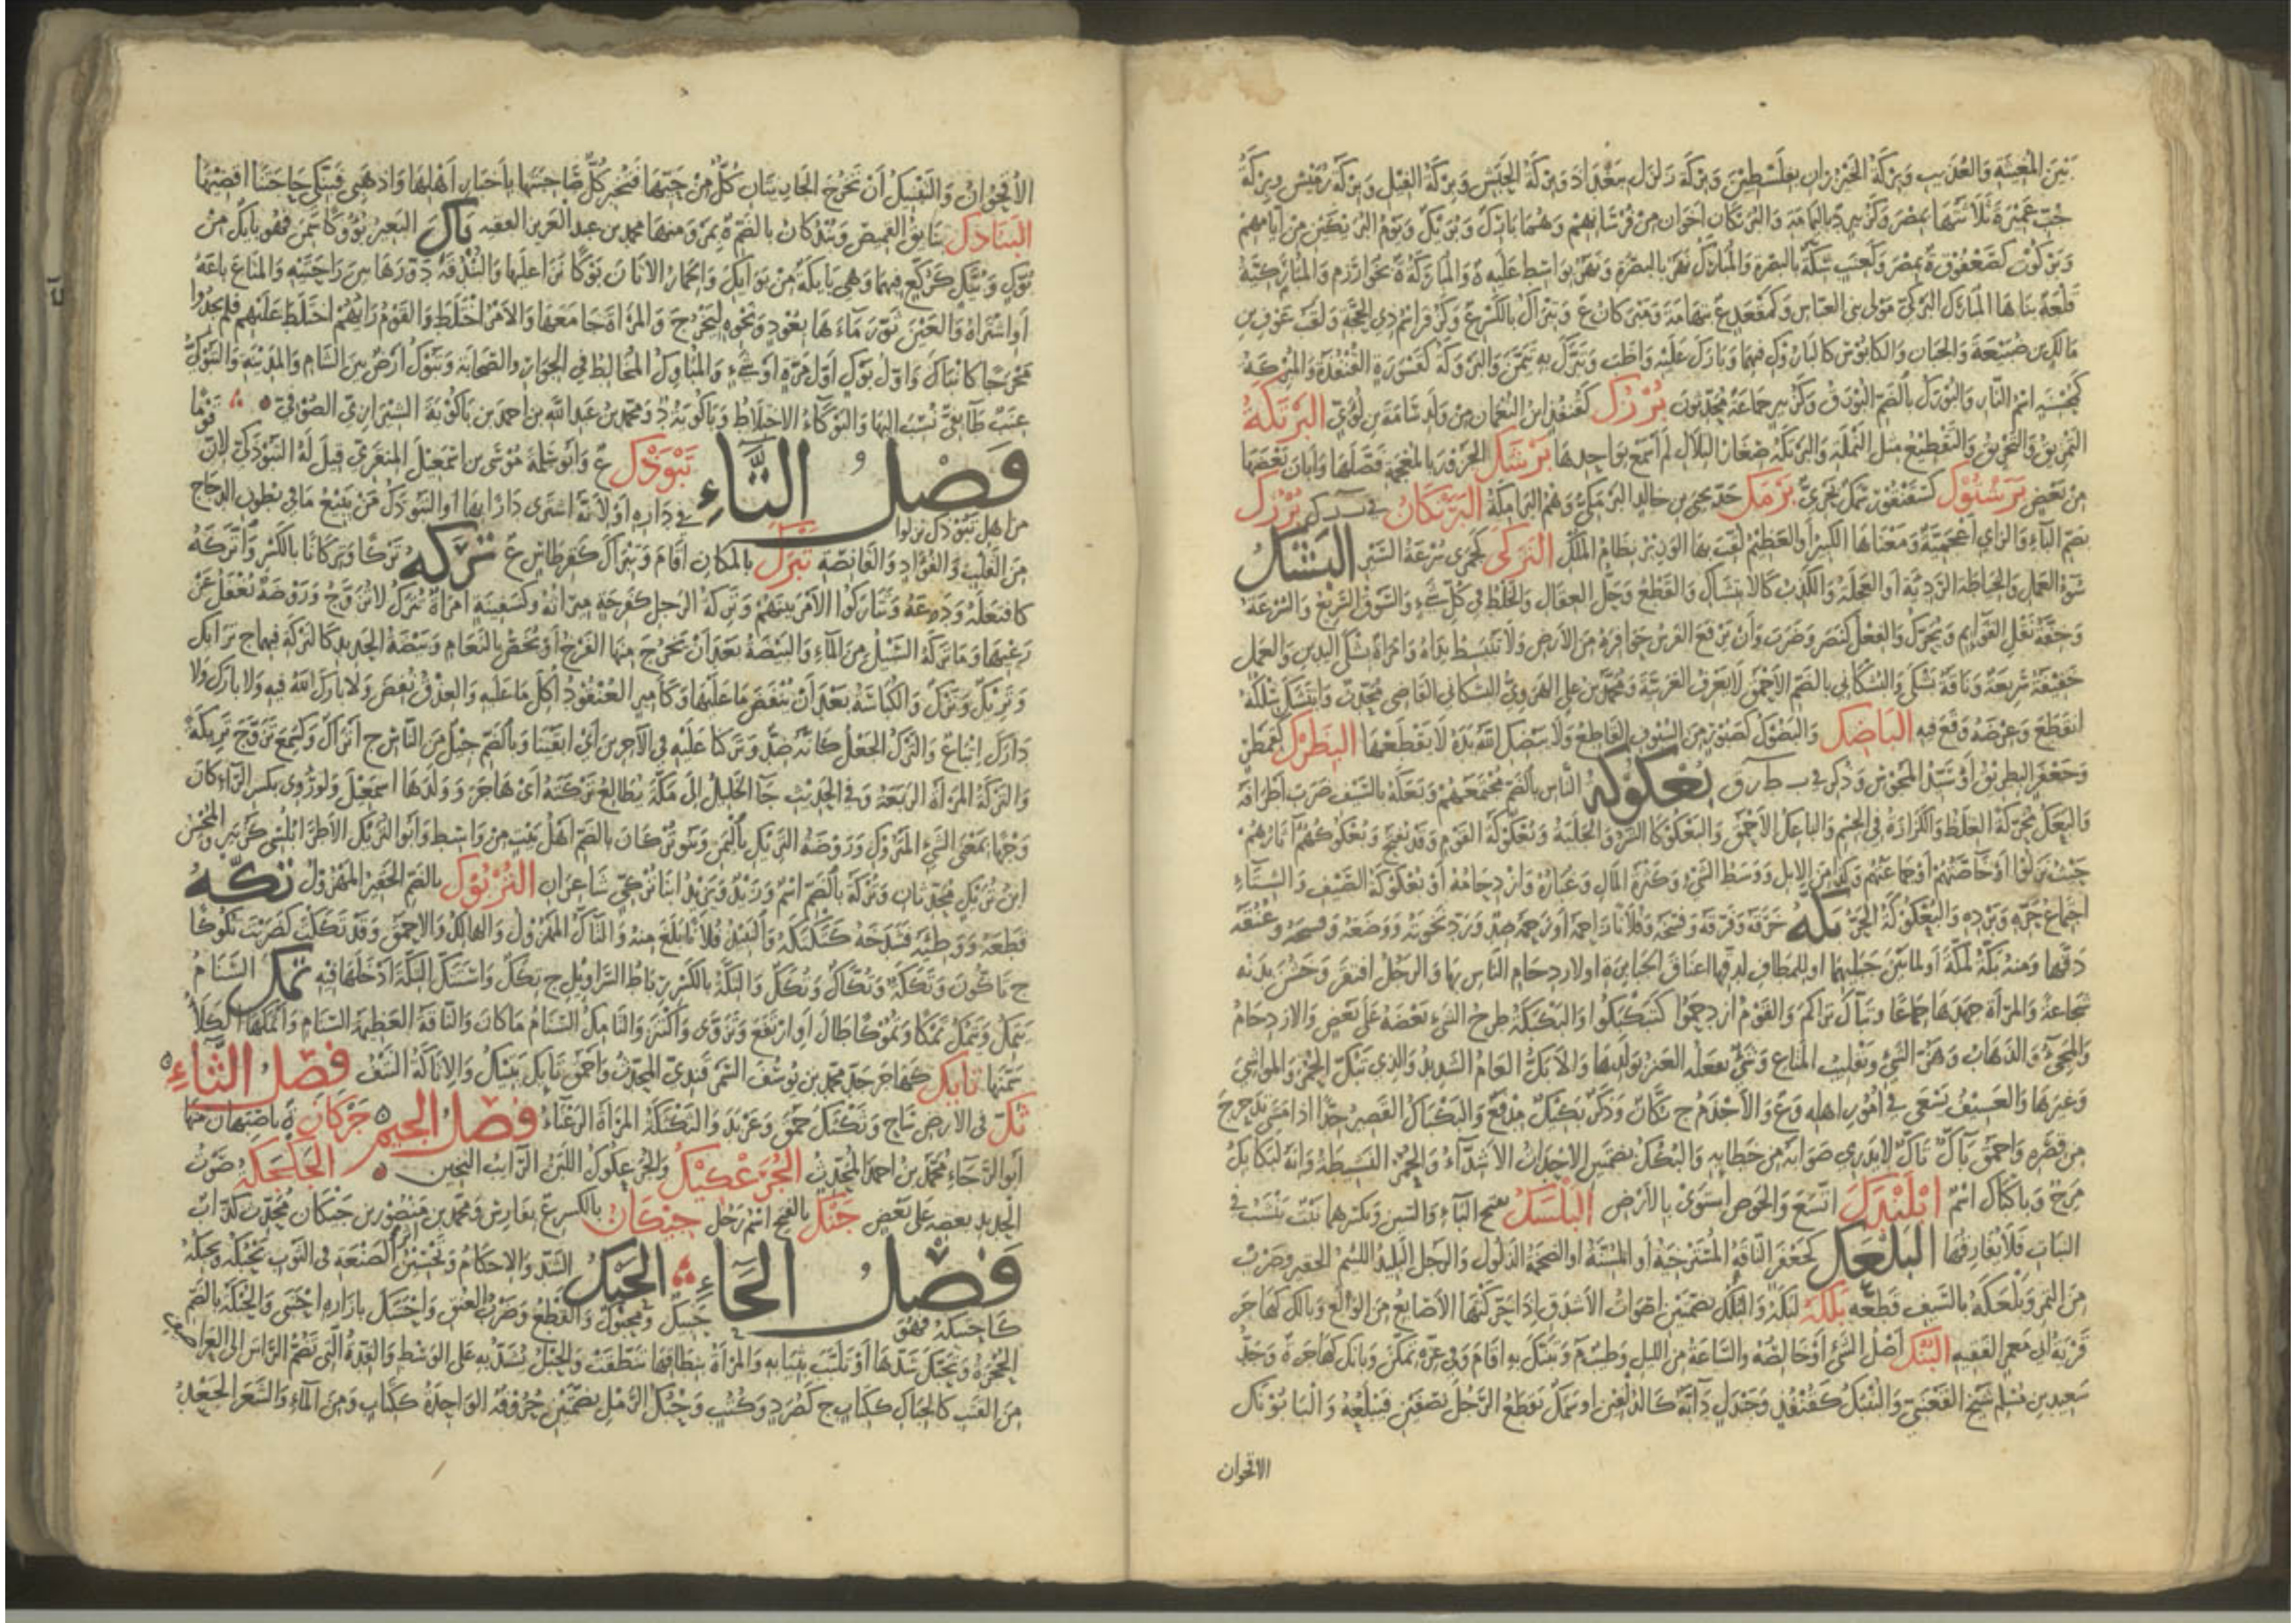 بَيْنَ المُغِيثَةِ والعُذَيْبِ وبِرْكَةُ الخَيْزُرانِ بِفِلَسْطِينَ وبِرْكَةُ زَلْزَلٍ بِبَغْدادَ وبِرْكَةُ الحَبَشِ وبِرْكَةُ الفِيلِ وبِرْكَةُ رُمَيْسٍ وبِرْكَةُ
جُبِّ عَمِيرَةَ ثلاثَتُها بمصر وكزبير د باليمامة والبُرَيْكان أخوان من فرسانهم وهما بارك وبريك ويوم البريكين من أيامهم
قلعة بناها المبارك التركي مولى بني العباس وكمقعد ع بتهامة
مالك بن ضبيعة والجبان والكابوس كالبازوك فيهما وبارك عليه واظب وتبرك به تيمن والبروكة كقسورة القنفذة
كمحسنة اسم النار والبورك بالضم البورق وكزبير جماعة محدثون بُرْزُك كقنفذ ابن النعمان من ولد شامة بن لؤي البَرْتَكَةُ
التمزيق والتخريق والتقطيع مثل النملة والبرتكة صغار التلال لم أسمع بواحدها بَرْشَكَ الجزور بالمعجمة فصلها وأبان بعضها
من بعض بَرَشْتُوك كسقنقور سمك بحري بَرْمَك جد يحيى بن خالد البرمكي وهم البرامكة البَرْنَكانُ في بُزْرُك
بضم الباء والزاي أعجمية ومعناها الكبير أو العظيم لقب بها الوزير نظام الملك البَزَكَى كجمزى سرعة السير البَشْكُ
سوء العمل والخياطة الردية أو العجلة والكذب كالابتشاك والقطع وحل العقال والخلط في كل شيء والسوق السريع والسرعة
وخفة نقل القوائم ويحرك والفعل كنصر وضرب وأن يرفع الفرس حوافره من الأرض ولا تنبسط يداه وامرأة بشكى اليدين والعمل
خفيفة سريعة وناقة بشكى والبشكاني بالضم الأحمق لا يعرف العربية ومحمد بن علي الهروي البشكاني القاضي محدث وابتشك سلكه
انقطع وعرضه وقع فيه البَاضِكُ والبضوك كصبور من السيوف القاطع ولا يبضك الله يده لا يقطعها البِطْرَك كقمطر
وجعفر البطريق أو سيد المجوس وذكر في ب ط ر ق بُعْكُوكَةُ الناس بالضم مجتمعهم وبعكه بالسيف ضرب أطرافه
والبعك محركة الغلظ والكزازة في الجسم والباعك الأحمق والبعكوكاء الشر والجلبة وبعكوكة القوم وقد يفتح
حيث نزلوا أو خاصتهم أو جماعتهم وكذا من الإبل ووسط الشيء وكثرة المال وغباره وازدحامه أو بعكوكة الصيف والشتاء
اجتماع حره وبرده والبعكوكة الحر بَكَّهُ خرقه وفرقه وفسخه وفلانا زاحمه أو رحمه ضد ورد نخوته ووضعه وعنقه
دقها ومنه بكة لمكة أو لما بين جبليها أو للمطاف لدقها أعناق الجبابرة أو لازدحام الناس بها والرجل افتقر وخشن بدنه
شجاعة والمرأة جهدها جماعا وتباك تراكم والقوم ازدحموا كتبكبكوا والبكبكة طرح الشيء بعضه على بعض والازدحام
والمجيء والذهاب وهز الشيء وتقليب المتاع وشيء تفعله العنز بولدها والأبك العام الشديد والذي يبك الحمر والمواشي
وغيرها والعسيف يسعى في أمور أهله وع والأجذم ج بكان وذكر بكبك مدفع والبكباك القصير جدا إذا مشى تدحرج
من قصره وأحمق باك تاك لا يدري صوابه من خطئه والبكك بضمتين الأحداث الأشداء والحمر النشيطة
مرح وبكاك اسم ابْلَنْدَكَ اتسع والحوض استوى بالأرض البَلْسَكُ بفتح الباء والسين وبكسرهما نبت ينشب في
الثياب فلا يفارقها البَلْعَكُ كجعفر الناقة المسترخية أو المسنة أو الضخمة الذلول والرجل البليد اللئيم الحقير وضرب
من التمر وبلعكه بالسيف قطعه بَلَكَهُ لبكه والبلك بضمتين أصوات الأشداق إذا حركتها الأصابع من الولع وبالك كهاجر
قرية أبي معمر الفقيه البُنْكُ أصل الشيء أو خالصه والساعة من الليل وطيب م وتبنك به أقام وفي عزه تمكن وبانك كهاجر ة وجد
سعيد بن مسلم شيخ القعنبي والبنبك كقنفذ وجندل دابة كالدلفين أو سمك يقطع الرجل نصفين فيبلعه والبابونك
الاقحوان
الأقحوان والتبنيك أن تخرج الجاريتان كل من حيها فتخبر كل صاحبتها بأخبار أهلها
البَنَادِكُ بنائق القميص وبندكان بالضم ة بمرو منها محمد بن عبد العزيز الفقيه بَاكَ البعير بؤوكا سمن فهو بائك من
بوك وبيك كركع فيهما وهي بائكة من بوائك والحمار الأتان بوكا نزا عليها والبندقة دورها بين راحتيه والمتاع باعه
أو اشتراه والعين ثور ماءها بعود ونحوه ليخرج والمرأة جامعها والأمر اختلط والقوم رأيهم اختلط عليهم فلم يجدوا
مخرجا كانباك وأول بوك أول مرة أو شيء والمباوك المخالط في الجوار والصحابة وتبوك أرض بين الشام والمدينة
عنب طائفي نسب إليها والبوكاء الاختلاط وباكوية د ومحمد بن عبد الله بن أحمد بن باكويه الشيرازي الصوفي
فصل التاء تَبُوذَكُ ع وأبو سلمة موسى بن إسمعيل المنقري قيل له التبوذكي لأن قوما
من أهل تبوذك نزلوا في داره أو لأنه اشترى دارا بها أو التبوذكي من يبيع ما في بطون الدجاج
من القلب والفؤاد والقانصة تَبْرَكَ بالمكان أقام وتبراك كقرطاس ع تَرَكَهُ تركا وتركانا بالكسر واتركه
كافتعله ودعه وتتاركوا الأمر بينهم وتركة الرجل كفرحة ميراثه وكسفينة امرأة تترك لا تزوج وروضة يغفل عن
رعيها وما تركه السيل من الماء والبيضة بعد أن يخرج منها الفرخ أو يخص بالنعام وبيضة الحديد كالتركة فيهما ج ترائك
وتريك وترك والكباسة بعد أن ينفض ما عليها وكأمير العنقود أكل ما عليه والعذق نفض ولا بارك الله فيه ولا تارك ولا
دارك إتباع والترك الجعل كأنه ضد وتركنا عليه في الآخرين أي أبقينا وبالضم جيل من الناس ج أتراك وكسمع تزوج تريكة
والتركة المرأة الربعة وفي الحديث جاء الخليل إلى مكة يطالع تركته أي هاجر وولدها إسمعيل ولو روي بكسر الراء كان
وجها بمعنى الشيء المتروك وروضة التريك باليمن
ابن تريك محدثان وتركة بالضم اسم وزيد ويزيد ابنا تركي شاعران التُّرْنُوكُ بالضم الحقير المهزول تَكَّهُ
قطعه ووطئه فشدخه كتكتكه والنبيذ فلانا بلغ منه والتاك المهزول والهالك والأحمق وقد تككت كضربت تكوكا
ج تاكون وتككة وتكاك وتكك والتكة بالكسر رباط السراويل ج تكك واستتك التكة أدخلها فيه تَمَكَ السنام
يتمك ويتمك تمكا وتموكا طال أو ارتفع وتروى واكتنز والتامك السنام ما كان والناقة العظيمة السنام وأتمكها الكلأ
سمنها تايَك كهاجر جد محمد بن يوسف السمرقندي المحدث وأحمق تائك بين التيك والإتاكة النتف فصل الثاء
ثَكَّ في الأرض ساح المرأة الرعناء فصل الجيم جَرْكَانُ ة بأصبهان منها
أبو الرجاء محمد بن أحمد المحدث الجُرَعْكِيكُ والجرعكوك اللبن الرائب الثخين الجَكْجَكَةُ صوت
الحديد بعضه على بعض جَنَكٌ بالفتح اسم رجل جِيكَان بالكسر ع بفارس ومحمد بن منصور بن جيكان محدث كذاب
فصل الحاء الحَبْكُ الشد والإحكام وتحسين أثر الصنعة في الثوب يحبكه ويحبكه
كاحتبكه فهو حبيك ومحبوك والقطع وضرب العنق واحتبك بازاره احتبى والحبكة بالضم
الحجزة وتحبك شدها أو تلبب بثيابه والمرأة بنطاقها تنطقت والحبل يشد به على الوسط والقدة التي تضم الرأس إلى الغراضيف
من القتب كالحباك ككتاب ج كصرد وكتب وحبك الرمل بضمتين حروفه الواحدة ككتاب ومن الماء والشعر الجعد